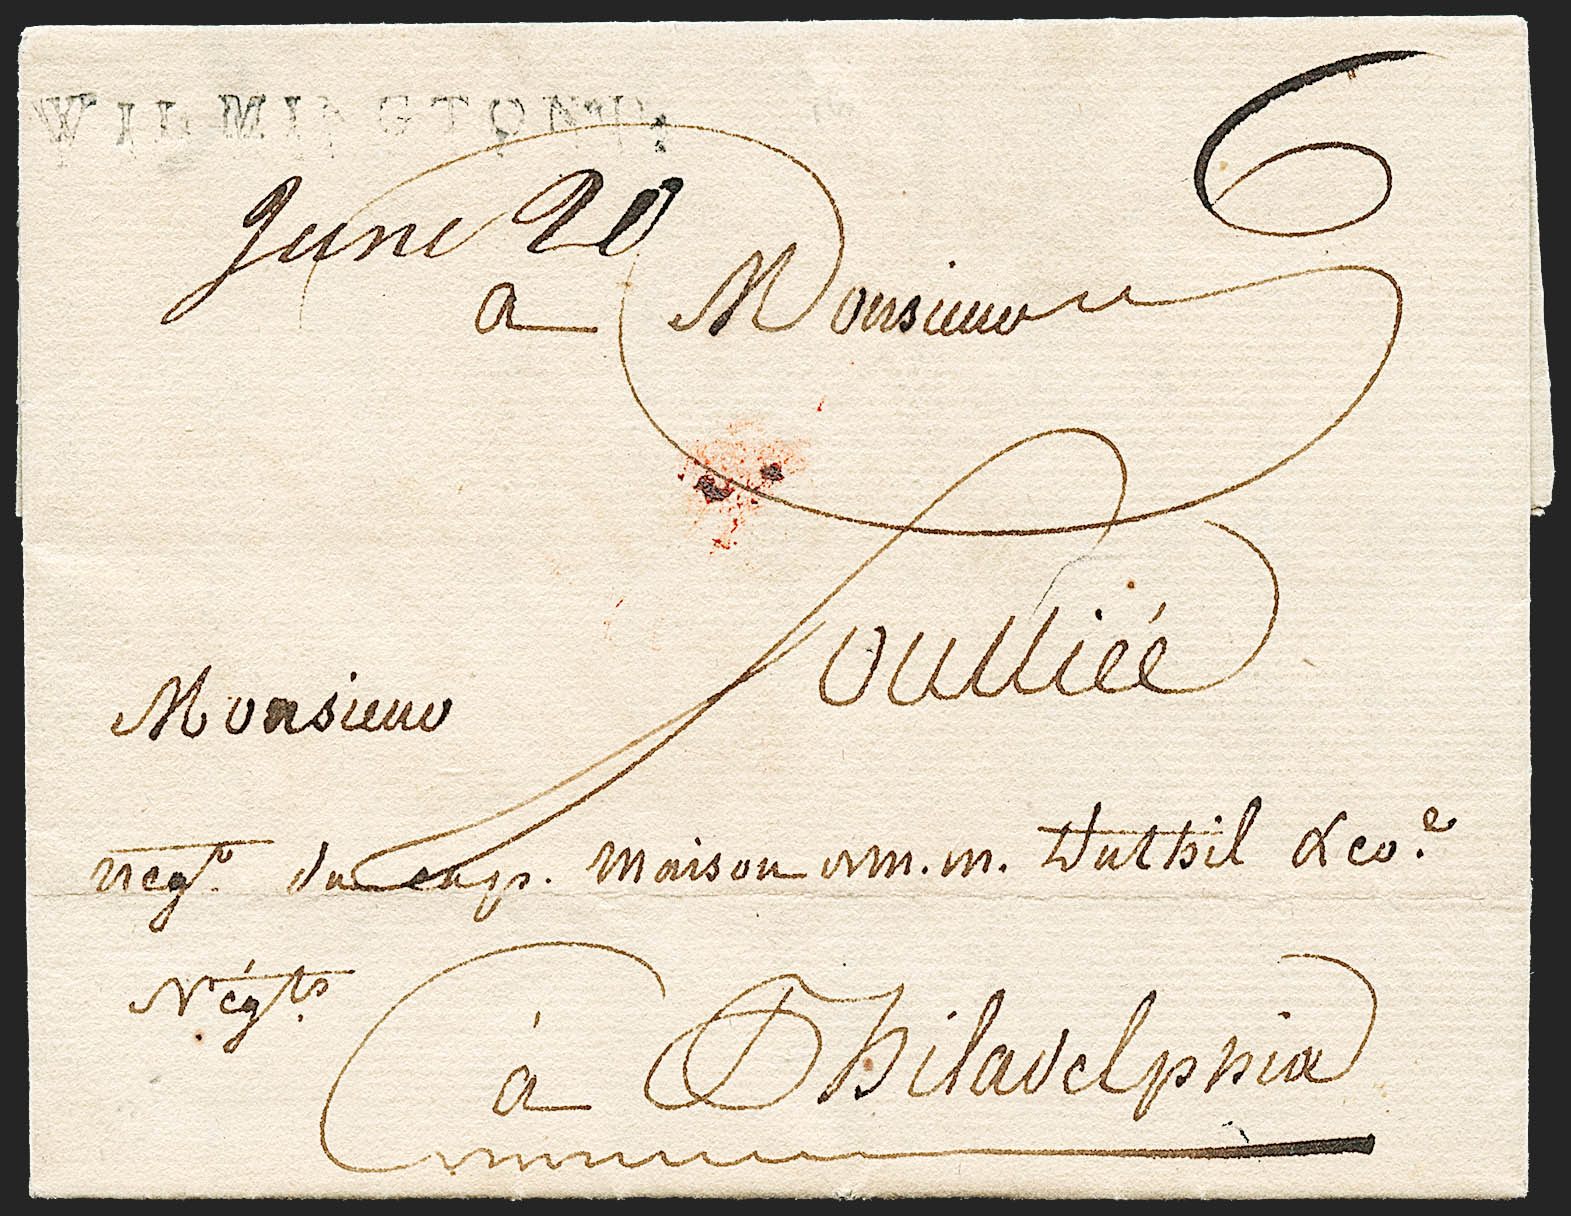 WILMINGTON
6
June 20
a Monsieur
Soulliée
Monsieur
Negt. du cap. maison mm. Duthil & coe.
Négts.
à Philadelphia